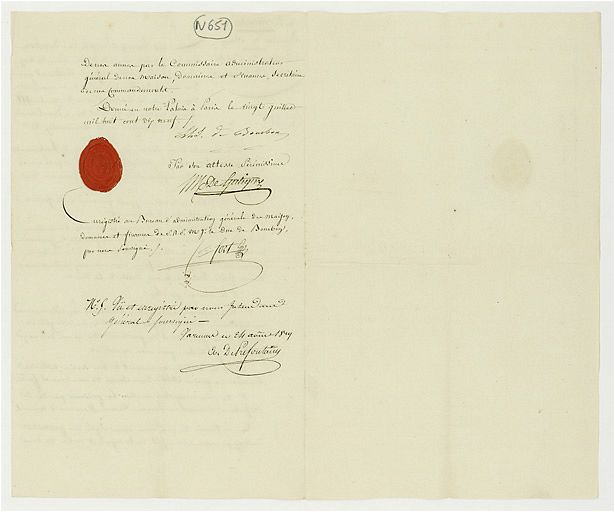 N 651
De nos armes par le Commissaire administrateur
général de nos Maison, Domaines et finances, Secrétaire
de nos Commandements.
Donné en notre Palais à Paris le vingt
mil huit cent dix neuf /.
de Bourbon
Par son altesse Sérénissime
Enregistré au Bureau d'administration générale des Maison,
domaines et finances de S.A.S. Mgr. le Duc de Bourbon,
par nous Soussigné /.
Vu et enregistré par nous Intendant
général soussigné
le 24 1819